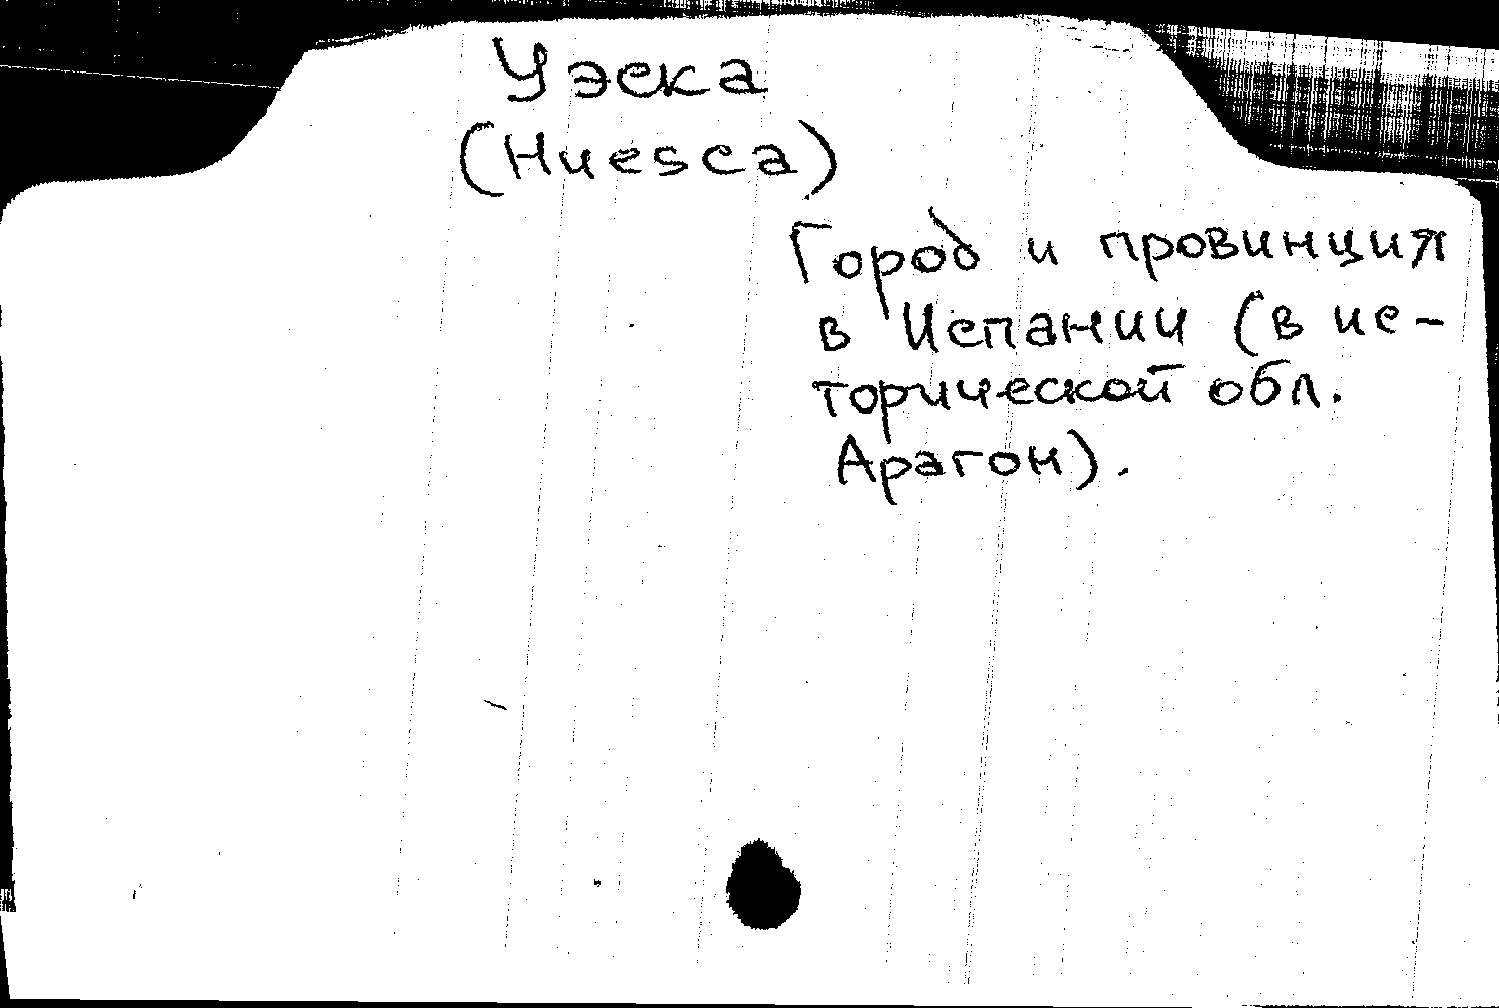 Уэска
(Huesca)
Город и провинция
в Испании (в ис-
торической обл.
Арагон).